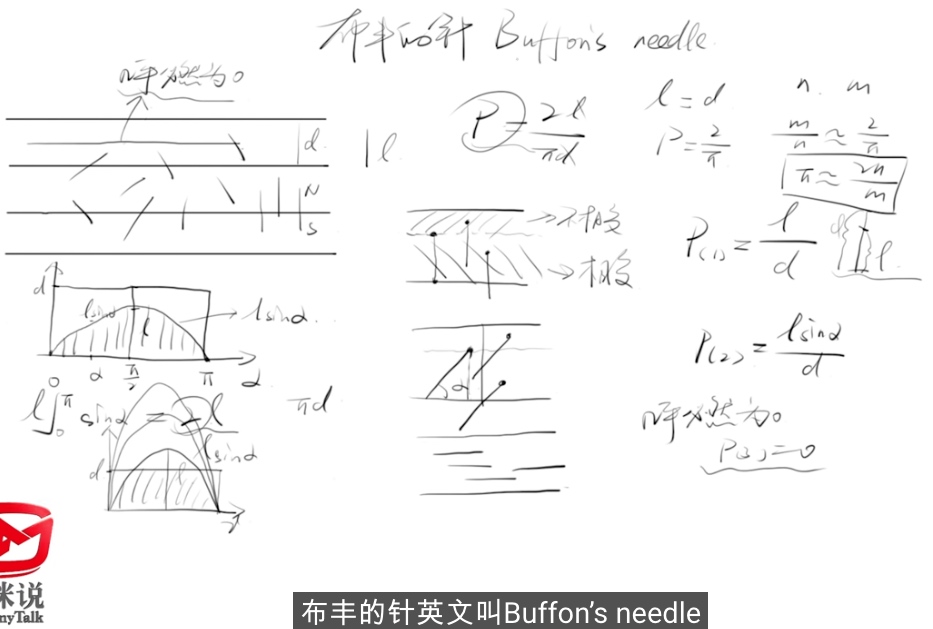 布丰的针 Buffon's needle
必然为0
d
l
N
S
P = 2l/πd
l = d
P = 2/π
n. m
m/n ≈ 2/π
π ≈ 2n/m
不相交
相交
P(1) = l/d
d
l
d
lsinα
l
lsinα
α
π/2
π
α
l∫
0
π
0
sinα = 2l
πd
lsinα
d
l
π
α
P(2) = lsinα/d
必然为0
P(3) = 0
咪说
nyTalk
布丰的针英文叫Buffon's needle